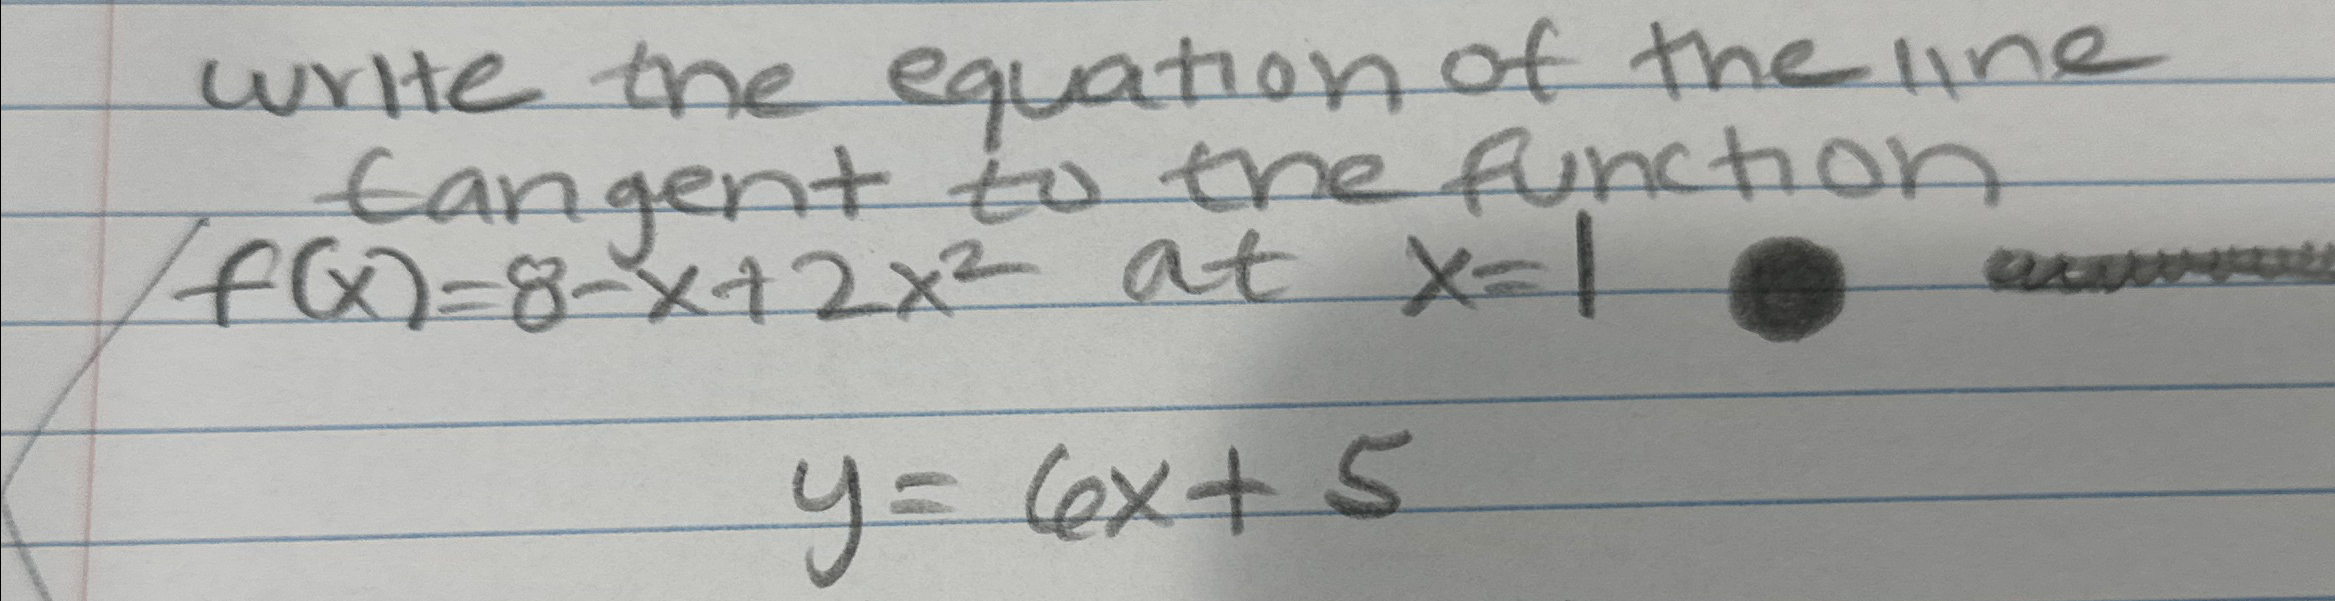 write the equation of the line
tangent to the function
f(x)=8-x+2x² at x=1
y=6x+5